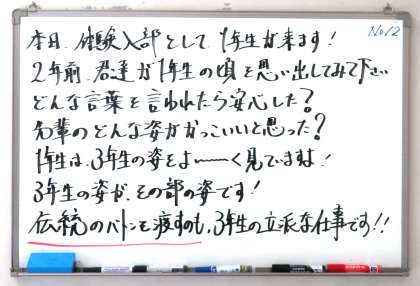 No12
本日、体験入部として、1年生が来ます!
2年前、君達が1年生の頃を思い出してみて下さい
どんな言葉を言われたら安心した?
先輩のどんな姿がかっこいいと思った?
1年生は、3年生の姿をよ〜〜く見ていますよ!
3年生の姿が、その部の姿です!
伝統のバトンを渡すのも、3年生の立派な仕事です!!